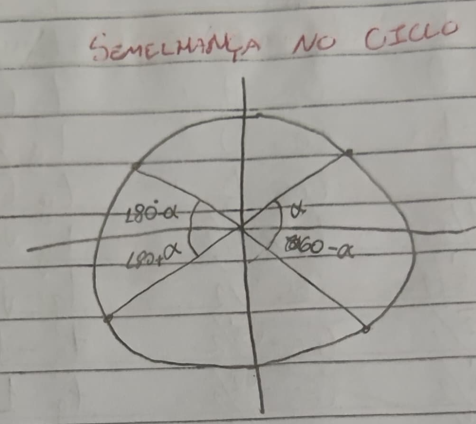 SEMELHANÇA NO CICLO
180-α
α
180+α
360-α